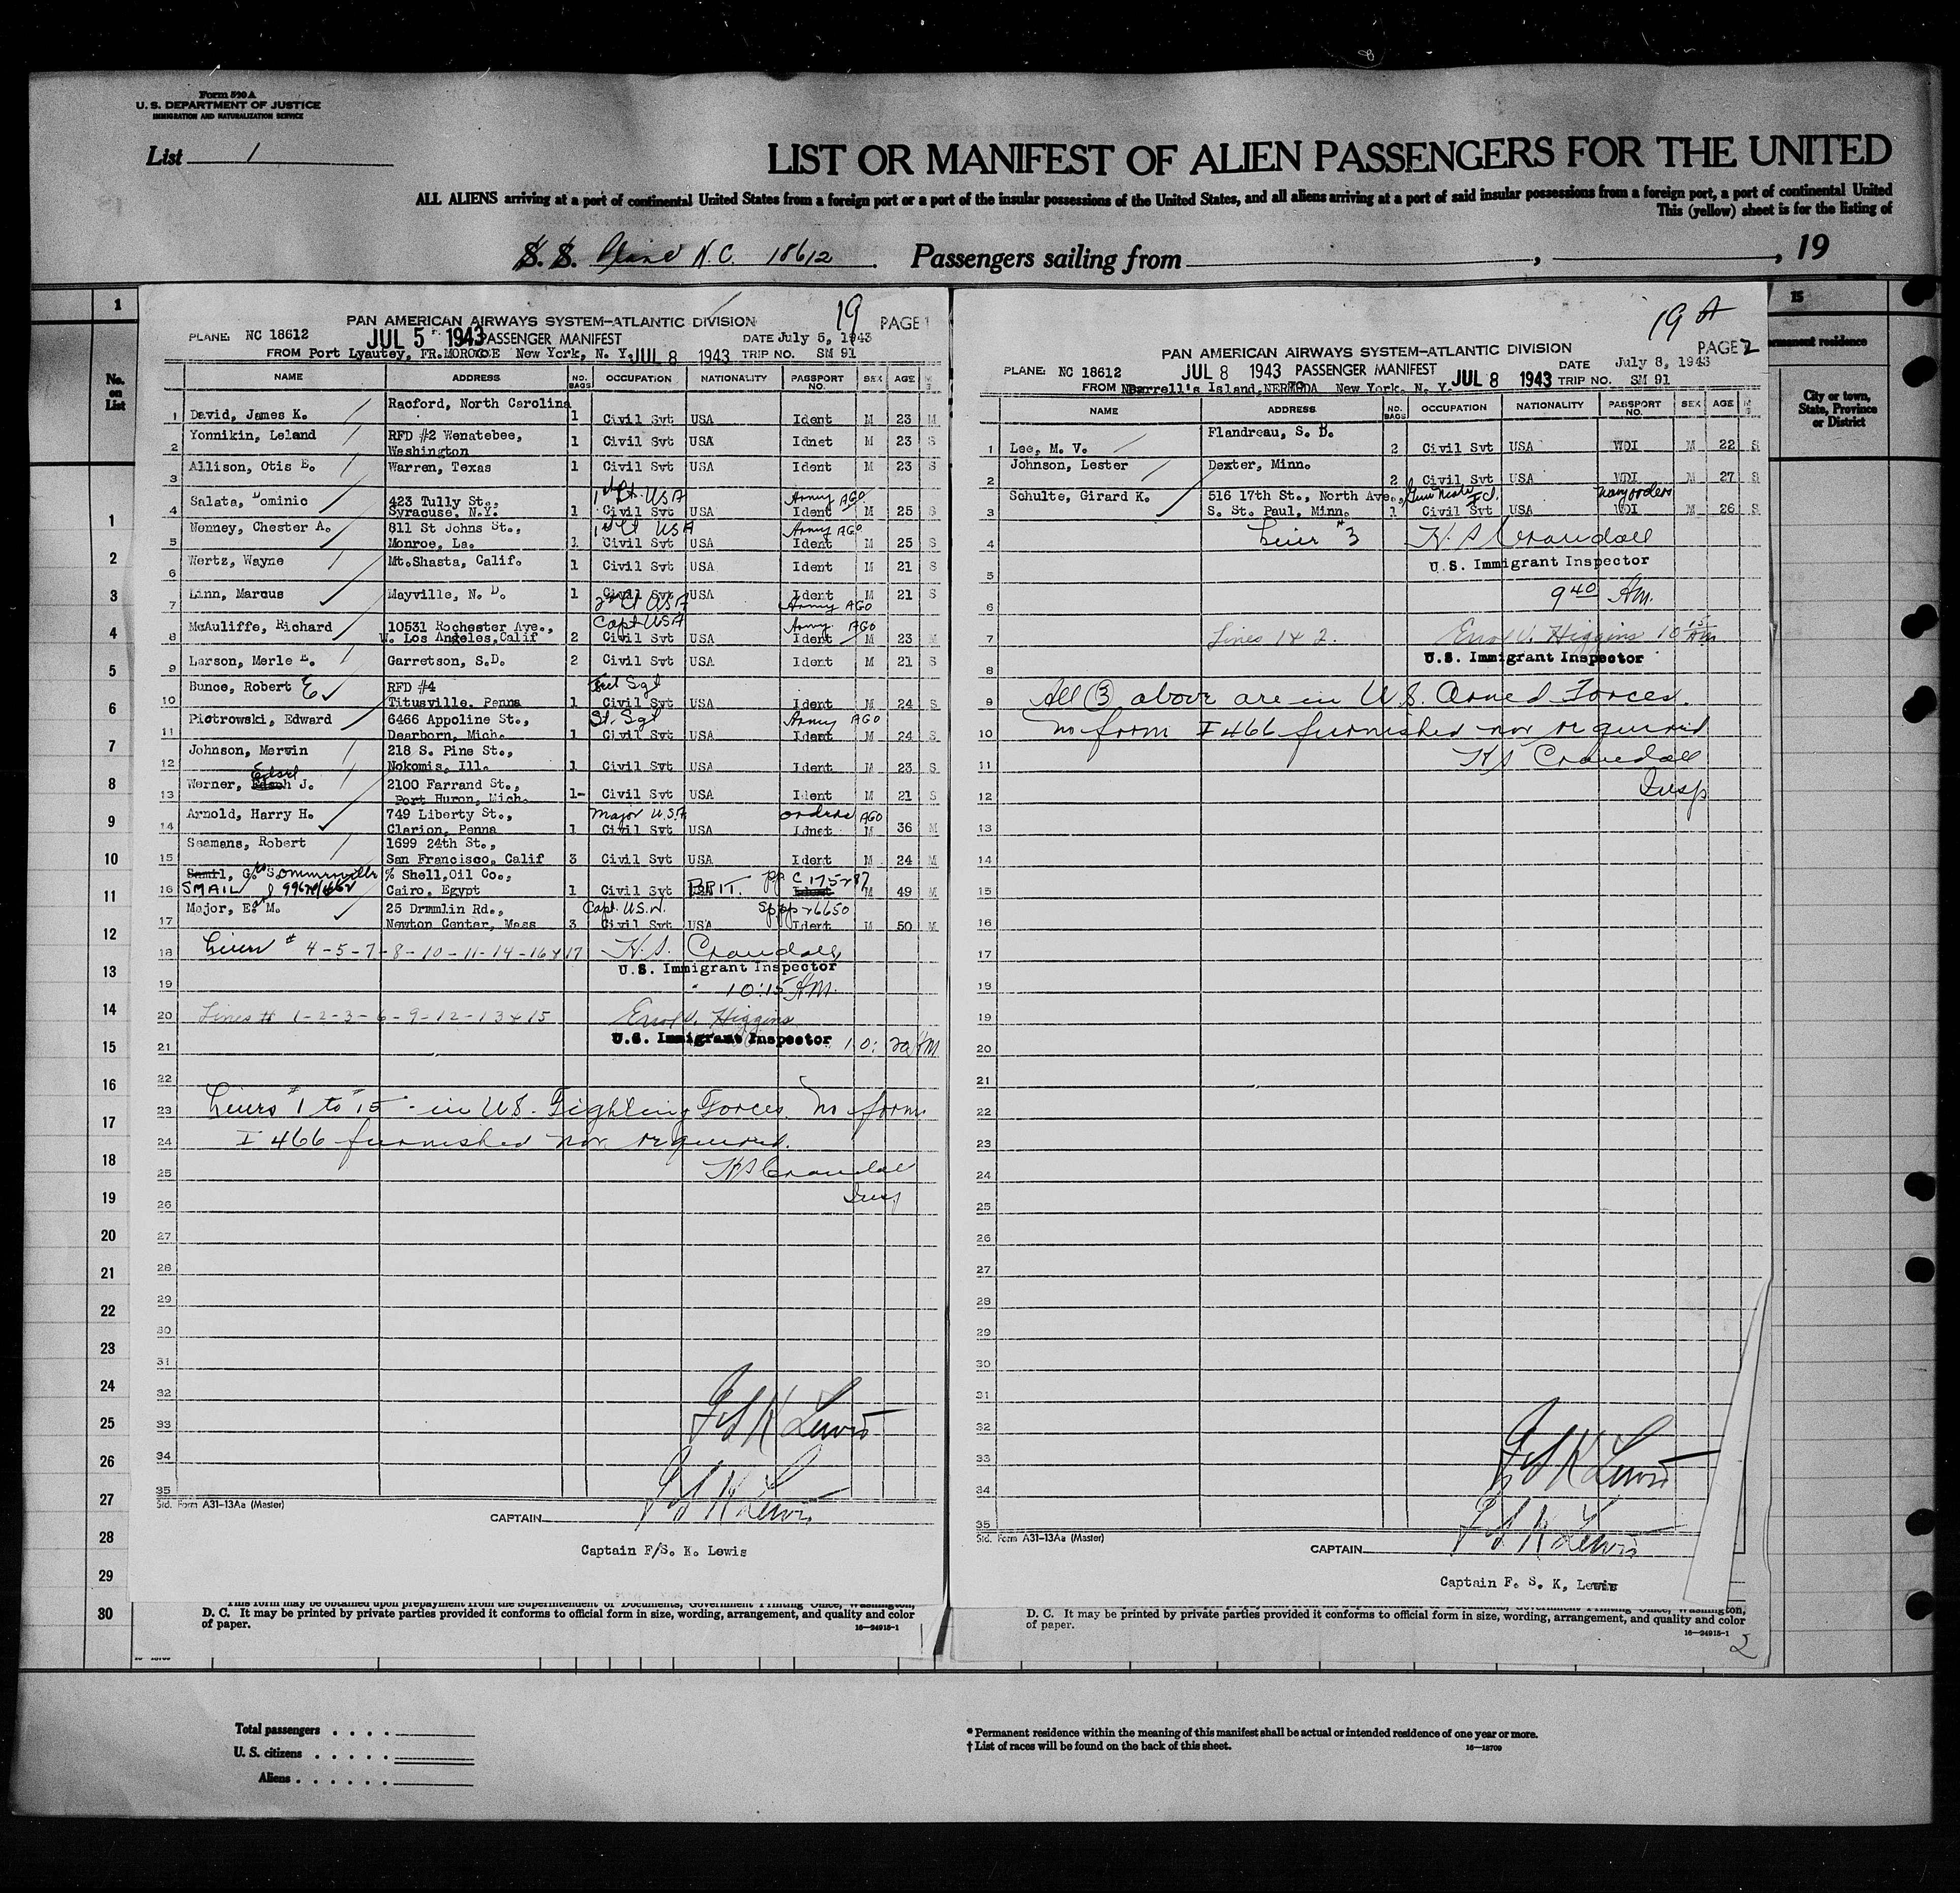 Form 590A
U. S. DEPARTMENT OF JUSTICE
IMMIGRATION AND NATURALIZATION SERVICE
List 1
LIST OR MANIFEST OF ALIEN PASSENGERS FOR THE UNITED
ALL ALIENS arriving at a port of continental United States from a foreign port or a port of the insular possessions of the United States, and all aliens arriving at a port of said insular possessions from a foreign port, a port of continental United
This (yellow) sheet is for the listing of
S. S. Plane N.C. 18612 . Passengers sailing from , , 19
1
No. on List
1
2
3
4
5
6
7
8
9
10
11
12
13
14
15
16
17
18
19
20
21
22
23
24
25
26
27
28
29
30
19
PAN AMERICAN AIRWAYS SYSTEM–ATLANTIC DIVISION PAGE 1
PLANE: NC 18612 JUL 5 1943 PASSENGER MANIFEST DATE July 5, 1943
FROM Port Lyautey, FR. MOROCCO New York, N. Y. JUL 8 1943 TRIP NO. SM 91
NAME ADDRESS NO. BAGS OCCUPATION NATIONALITY PASSPORT NO. SEX AGE M S
Racford, North Carolina
1 David, James K. 1 Civil Svt USA Ident M 23 M
2 Yonnikin, Leland RFD #2 Wenatebee, 1 Civil Svt USA Idnet M 23 S
Washington
3 Allison, Otis E. Warren, Texas 1 Civil Svt USA Ident M 23 S
1st Lt. USA Army AGO
4 Salata, Dominic 423 Tully St.,
Syracuse, N.Y. 1 Civil Svt USA Ident M 25 S
1st Lt USA Army AGO
5 Nenney, Chester A. 811 St Johns St.,
Monroe, La. 1 Civil Svt USA Ident M 25 S
6 Wertz, Wayne Mt.Shasta, Calif. 1 Civil Svt USA Ident M 21 S
7 Linn, Marcus Mayville, N. D. 1 Civil Svt USA Ident M 21 S
2nd Lt USA Army AGO
Capt USA Army AGO
8 McAuliffe, Richard 10531 Rochester Ave.,
W. Los Angeles,Calif 2 Civil Svt USA Ident M 23 M
9 Larson, Merle E. Garretson, S.D. 2 Civil Svt USA Ident M 21 S
10 Bunce, Robert E RFD #4 Sgt
Titusville, Penna 1 Civil Svt USA Ident M 24 S
11 Piotrowski, Edward 6466 Appoline St., St. Sgt Army AGO
Dearborn, Mich. 1 Civil Svt USA Ident M 24 S
12 Johnson, Mervin 218 S. Pine St.,
Nokomis, Ill. 1 Civil Svt USA Ident M 23 S
Edsel
13 Werner, J. 2100 Farrand St.,
Port Huron, Mich. 1- Civil Svt USA Ident M 21 S
14 Arnold, Harry H. 749 Liberty St., Major U.S.A orders AGO
Clarion, Penna 1 Civil Svt USA Idnet M 36 M
15 Seamans, Robert 1699 24th St.,
San Francisco, Calif 3 Civil Svt USA Ident M 24 M
Samil, G. Sommerville % Shell,Oil Co., pp C 175287
16 SMAIL Cairo, Egypt 1 Civil Svt BRIT. Ident M 49 M
17 Major, E. M. 25 Drmmlin Rd., Capt. U.S.N. Sp pp 26650
Newton Center, Mass 3 Civil Svt USA Ident M 50 M
18 Lines # 4-5-7-8-10-11-14-16 & 17 H. S. Crandall
U.S. Immigrant Inspector
19 10:15 AM.
20 Lines # 1-2-3-6-9-12-13 & 15 Errol V. Higgins
21 U.S. Immigrant Inspector 10:20 AM
22
23 Lines #1 to 15 - in U.S. Fighting Forces. No form
24 I 466 furnished nor required.
25 H S Crandall
26 Insp
27
28
29
30
31
32
33 F S K Lewis
34
35 F S K Lewis
Std. Form A31-13Aa (Master)
CAPTAIN
Captain F/S. K. Lewis
This form may be obtained upon prepayment from the Superintendent of Documents, Government Printing Office, Washington,
D. C. It may be printed by private parties provided it conforms to official form in size, wording, arrangement, and quality and color
of paper.
16—24915-1
19 A
PAN AMERICAN AIRWAYS SYSTEM–ATLANTIC DIVISION PAGE 2
PLANE: NC 18612 JUL 8 1943 PASSENGER MANIFEST DATE July 8, 1943
FROM Darrell's Island, BERMUDA TO New York, N. Y. JUL 8 1943 TRIP NO. SM 91
NAME ADDRESS NO. BAGS OCCUPATION NATIONALITY PASSPORT NO. SEX AGE M S
Flandreau, S. D.
1 Lee, M. V. 2 Civil Svt USA WDI M 22 S
2 Johnson, Lester Dexter, Minn. 2 Civil Svt USA WDI M 27 S
3 Schulte, Girard K. 516 17th St., North Ave., navy orders
S. St. Paul, Minn. 1 Civil Svt USA WDI M 26 S
4 Line #3 H. S. Crandall
U.S. Immigrant Inspector
5
6 9 40 AM.
7 Lines 1 & 2. Errol V. Higgins 10 15 AM
U.S. Immigrant Inspector
8
9 All 3 above are in U.S. Armed Forces.
10 No form I 466 furnished nor required
11 H S Crandall
12 Insp
13
14
15
16
17
18
19
20
21
22
23
24
25
26
27
28
29
30
31
32
33 F S K Lewis
34
35 F S K Lewis
Std. Form A31-13Aa (Master)
CAPTAIN
Captain F. S. K, Lewis
D. C. It may be printed by private parties provided it conforms to official form in size, wording, arrangement, and quality and color
of paper.
16—24915-1
2
15
permanent residence
City or town, State, Province or District
Total passengers . . . .
U. S. citizens . . . . .
Aliens . . . . . .
* Permanent residence within the meaning of this manifest shall be actual or intended residence of one year or more.
† List of races will be found on the back of this sheet.
16—18709